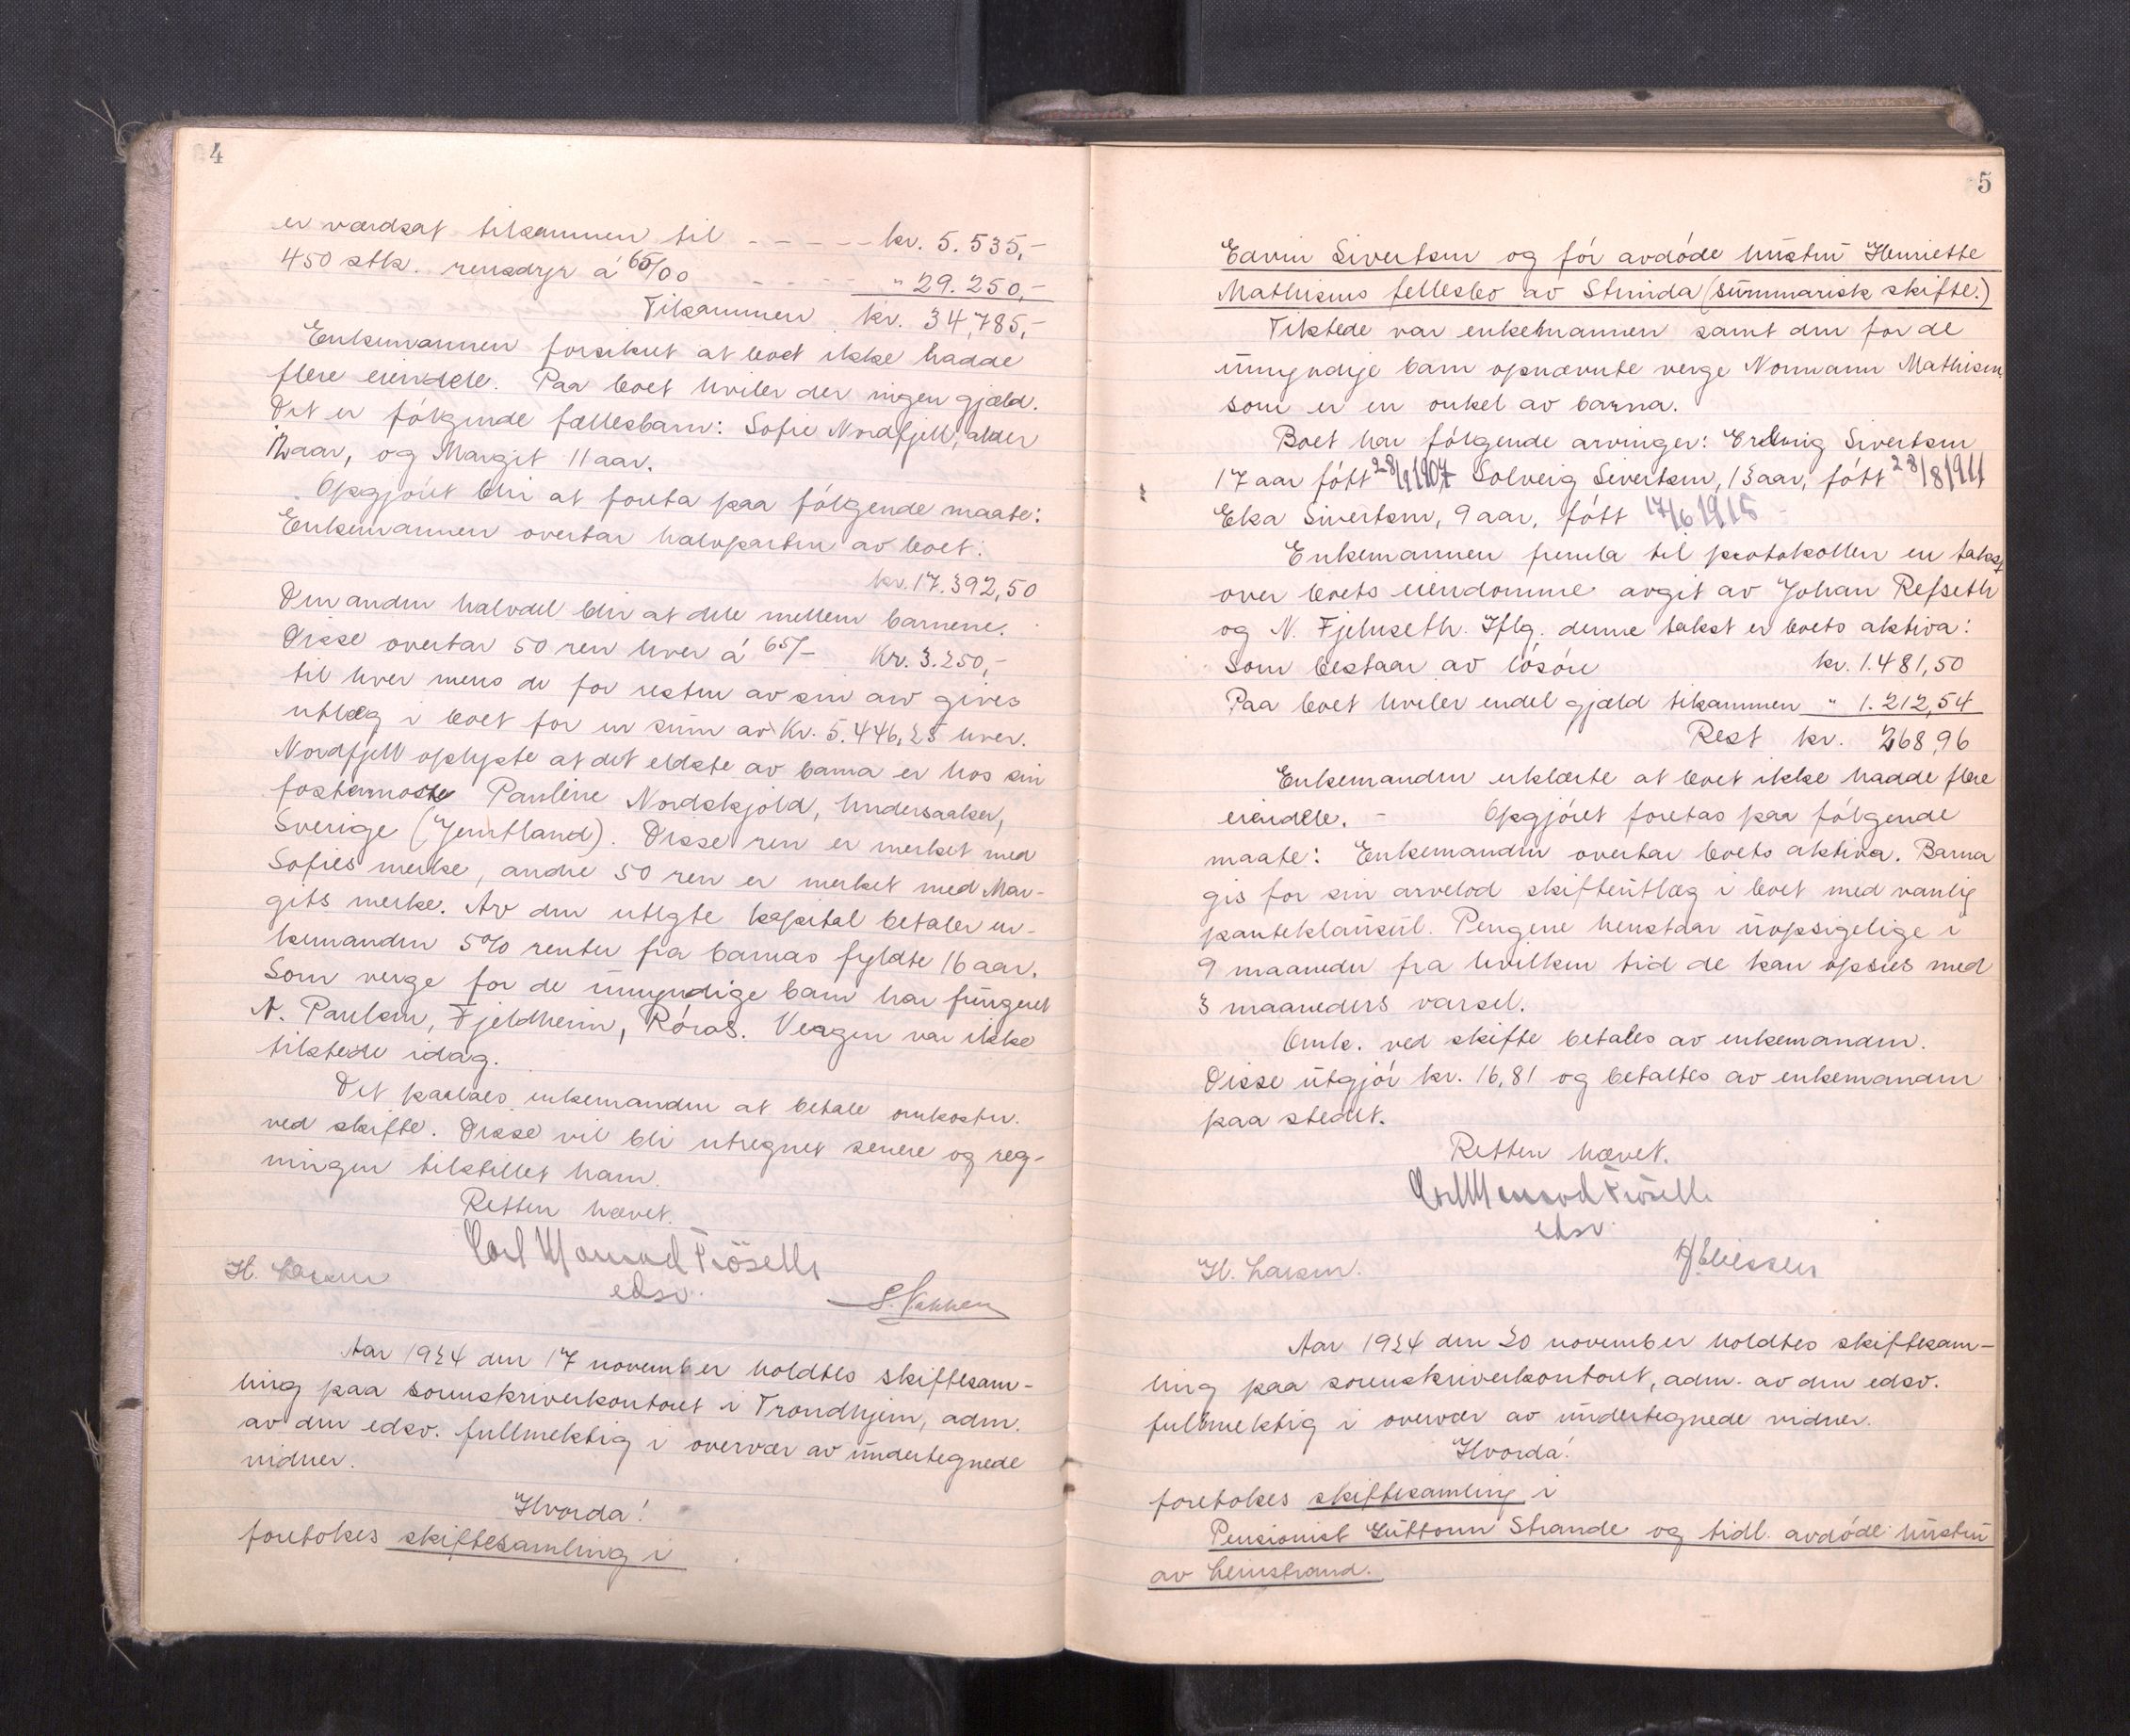 4
er værdsat tilsammen til - - - - - kr. 5.535,-
450 stk. rensdyr á 65/00 - - - - " 29.250,-
Tilsammen kr. 34,785,-
Enkemannen forsikret at boet ikke hadde
flere eiendele. Paa boet hviler der ingen gjæld.
Det er følgende fællesbarn: Sofie Nordfjell, alder
12 aar, og Margit 11 aar.
Opgjøret blir at foreta paa følgende maate:
Enkemannen overtar halvparten av boet:
kr. 17.392,50
Den anden halvdel blir at dele mellem barnene.
Disse overtar 50 ren hver á 65/- Kr. 3.250,-
til hver mens de for resten av sin arv gives
utlæg i boet for en sum av Kr. 5.446,25 hver.
Nordfjell oplyste at det eldste av barna er hos sin
fostermoster Pauline Nordskjold, Undersaaker,
Sverige (Jemtland). Disse ren er merket med
Sofies merke, andre 50 ren er merket med Mar-
gits merke. Av den utlegte kapital betaler en-
kemanden 5% renter fra barnas fyldte 16 aar.
Som verge for de umyndige barn har fungeret
N. Paulsen, Fjeldheim, Røros. Vergen var ikke
tilstede idag.
Det paalaes enkemanden at betale omkostn.
ved skifte. Disse vil bli utregnet senere og reg-
ningen tilstillet ham.
Retten hævet.
Carl Monrad Frøseth
edsv.
H. Larsen
S. Nekken
Aar 1924 den 17 november holdtes skiftesam-
ling paa sorenskriverkontoret i Trondhjem, adm.
av den edsv. fullmektig i overvær av undertegnede
vidner.
Hvorda!
foretokes skiftesamling i
5
Edvin Sivertsen og før avdøde hustru Henriette
Mathisens fellesbo av Strinda (summarisk skifte.)
Tilstede var enkemannen samt den for de
umyndige barn opnævnte verge Normann Mathisen
som er en onkel av barna.
Boet har følgende arvinger: Erling Sivertsen
17 aar født 28/9 1907 Solveig Sivertsen, 13 aar, født 28/8 1911
Elsa Sivertsen, 9 aar, født 17/6 1915
Enkemannen fremla til protokollen en takst
over boets eiendomme avgit av Johan Refseth
og N. Fjelnseth. Iflg. denne takst er boets aktiva:
Som bestaar av løsøre kr. 1.481,50
Paa boet hviler endel gjæld tilsammen " 1.212,54
Rest kr. 268,96
Enkemanden erklærte at boet ikke hadde flere
eiendele. - Opgjøret foretas paa følgende
maate: Enkemanden overtar boets aktiva. Barna
gis for sin arvelod skifteutlæg i boet med vanlig
panteklausul. Pengene henstaar uopsigelige i
9 maaneder fra hvilken tid de kan opsies med
3 maaneders varsel.
Omk. ved skifte betales av enkemanden.
Disse utgjør kr. 16,81 og betaltes av enkemanden
paa stedet.
Retten hævet.
Carl Monrad Frøseth
edsv.
H. Larsen.
Aar 1924 den 20 november holdtes skiftesam-
ling paa sorenskriverkontoret, adm. av den edsv.
fullmektig i overvær av undertegnede vidner.
Hvorda!
foretokes skiftesamling i
Pensionist Guttorm Strande og tidl. avdøde hustru
av Leinstrand.